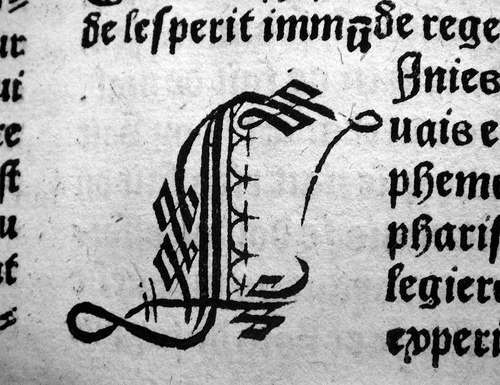 de lesperit immūde rege
L
Jnies
uais e
pheme
pharis
legiere
experi
ur
ui
re
st
u
at